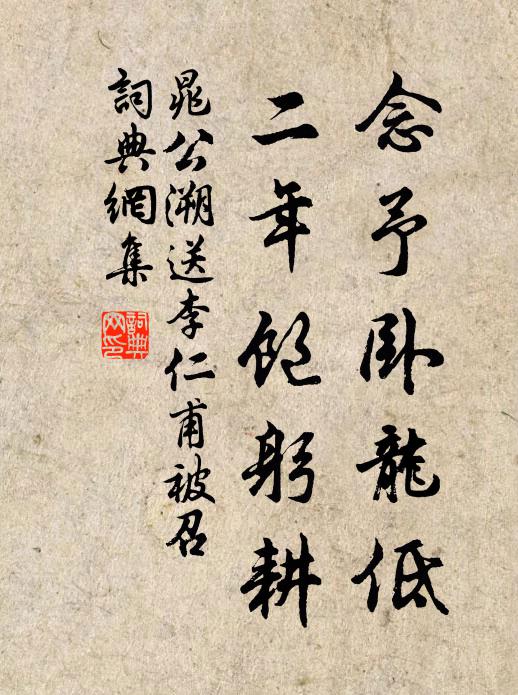 念予卧龍低
二年飽躬耕
晁公溯送李仁甫被召
詞典網集
詞典網印